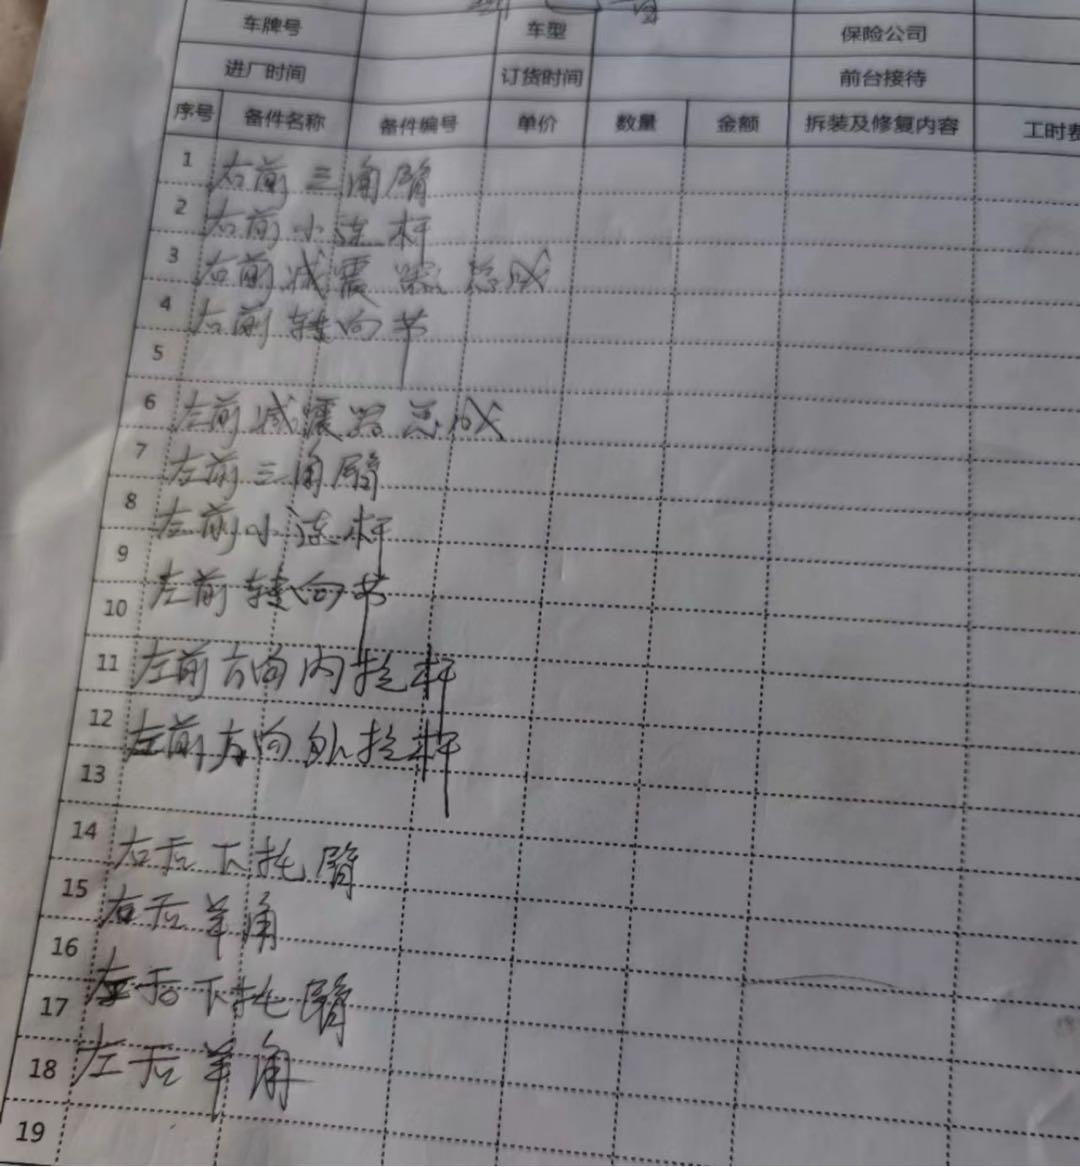 车牌号 车型 保险公司
进厂时间 订货时间 前台接待
序号 备件名称 备件编号 单价 数量 金额 拆装及修复内容 工时费
1 右前三角臂
2 右前小连杆
3 右前减震器总成
4 右前转向节
5
6 左前减震器总成
7 左前三角臂
8 左前小连杆
9 左前转向节
10
11 左前方向内拉杆
12 左前方向外拉杆
13
14 右后下托臂
15 右后羊角
16
17 左后下托臂
18 左后羊角
19